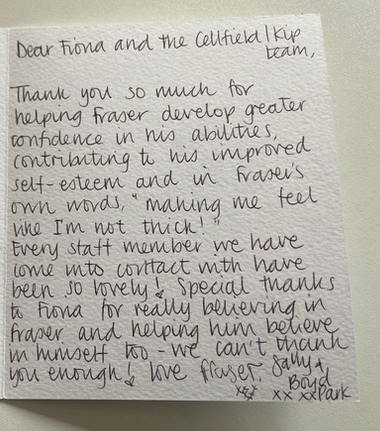 Dear Fiona and the Cellfield/Kip
team,
Thank you so much for
helping Fraser develop greater
confidence in his abilities,
contributing to his improved
self-esteem and in Fraser's
own words, "making me feel
like I'm not thick!"
Every staff member we have
come into contact with have
been so lovely! Special thanks
to Fiona for really believing in
Fraser and helping him believe
in himself too - we can't thank
you enough! love Fraser, Sally &
Boyd
xx xx xx Park